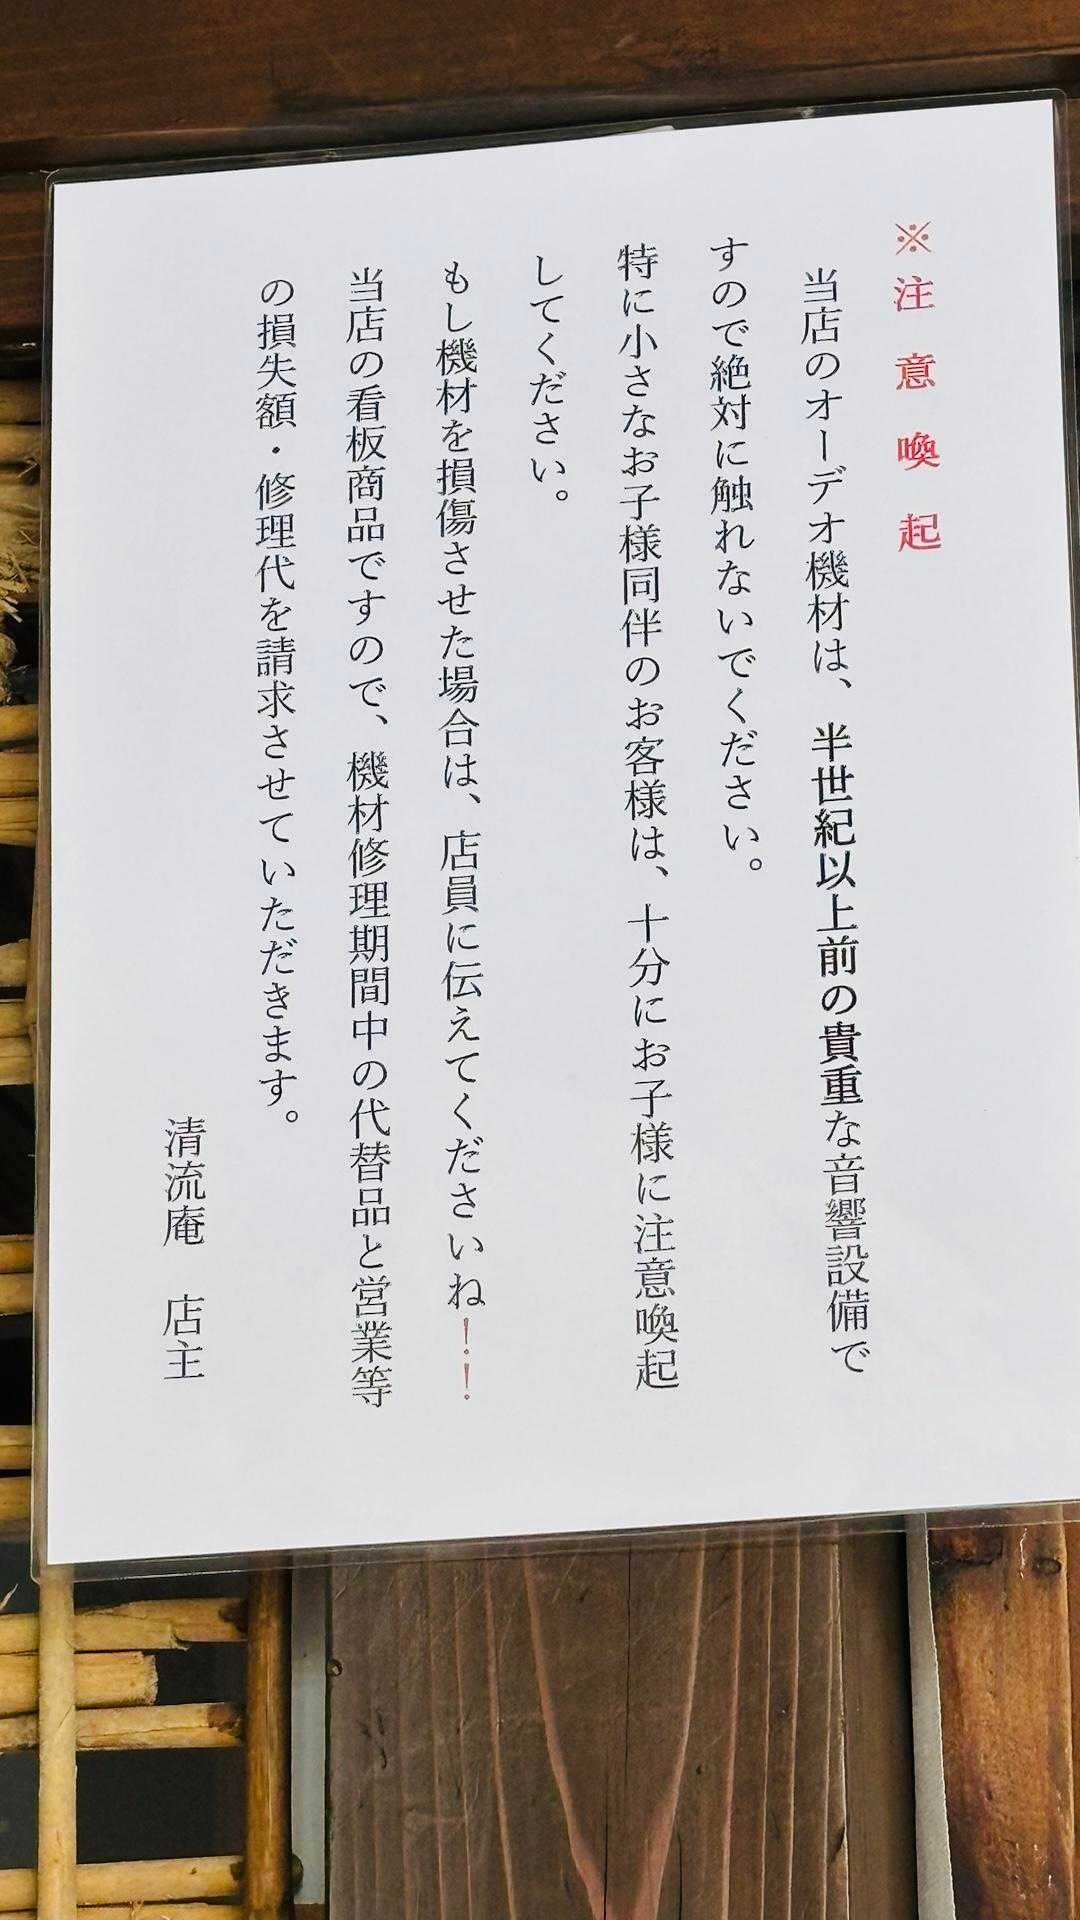 ※注意喚起
当店のオーデオ機材は、半世紀以上前の貴重な音響設備で
すので絶対に触れないでください。
特に小さなお子様同伴のお客様は、十分にお子様に注意喚起
してください。
もし機材を損傷させた場合は、店員に伝えてくださいね!!
当店の看板商品ですので、機材修理期間中の代替品と営業等
の損失額・修理代を請求させていただきます。
清流庵 店主